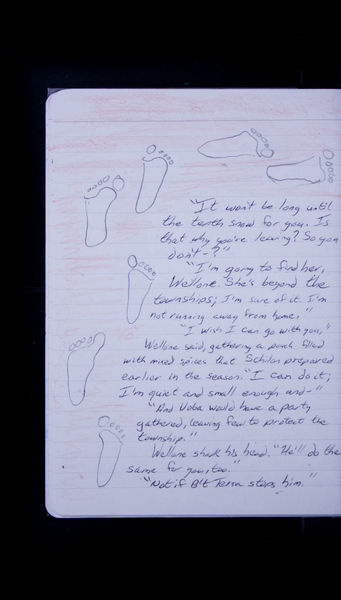 "It won't be long until
the tenth snow for you. Is
that why you're leaving? So you
don't-?"
"I'm going to find her,
Wellone. She's beyond the
townships; I'm sure of it. I'm
not running away from home."
"I wish I can go with you,"
Wellone said, gathering a pouch filled
with mixed spices that Schilon prepared
earlier in the season. "I can do it;
I'm quiet and small enough and-"
"And Uoba would have a party
gathered, leaving few to protect the
township."
Wellone shook his head. "He'll do the
same for you, too."
"Not if B't Terra stops him."